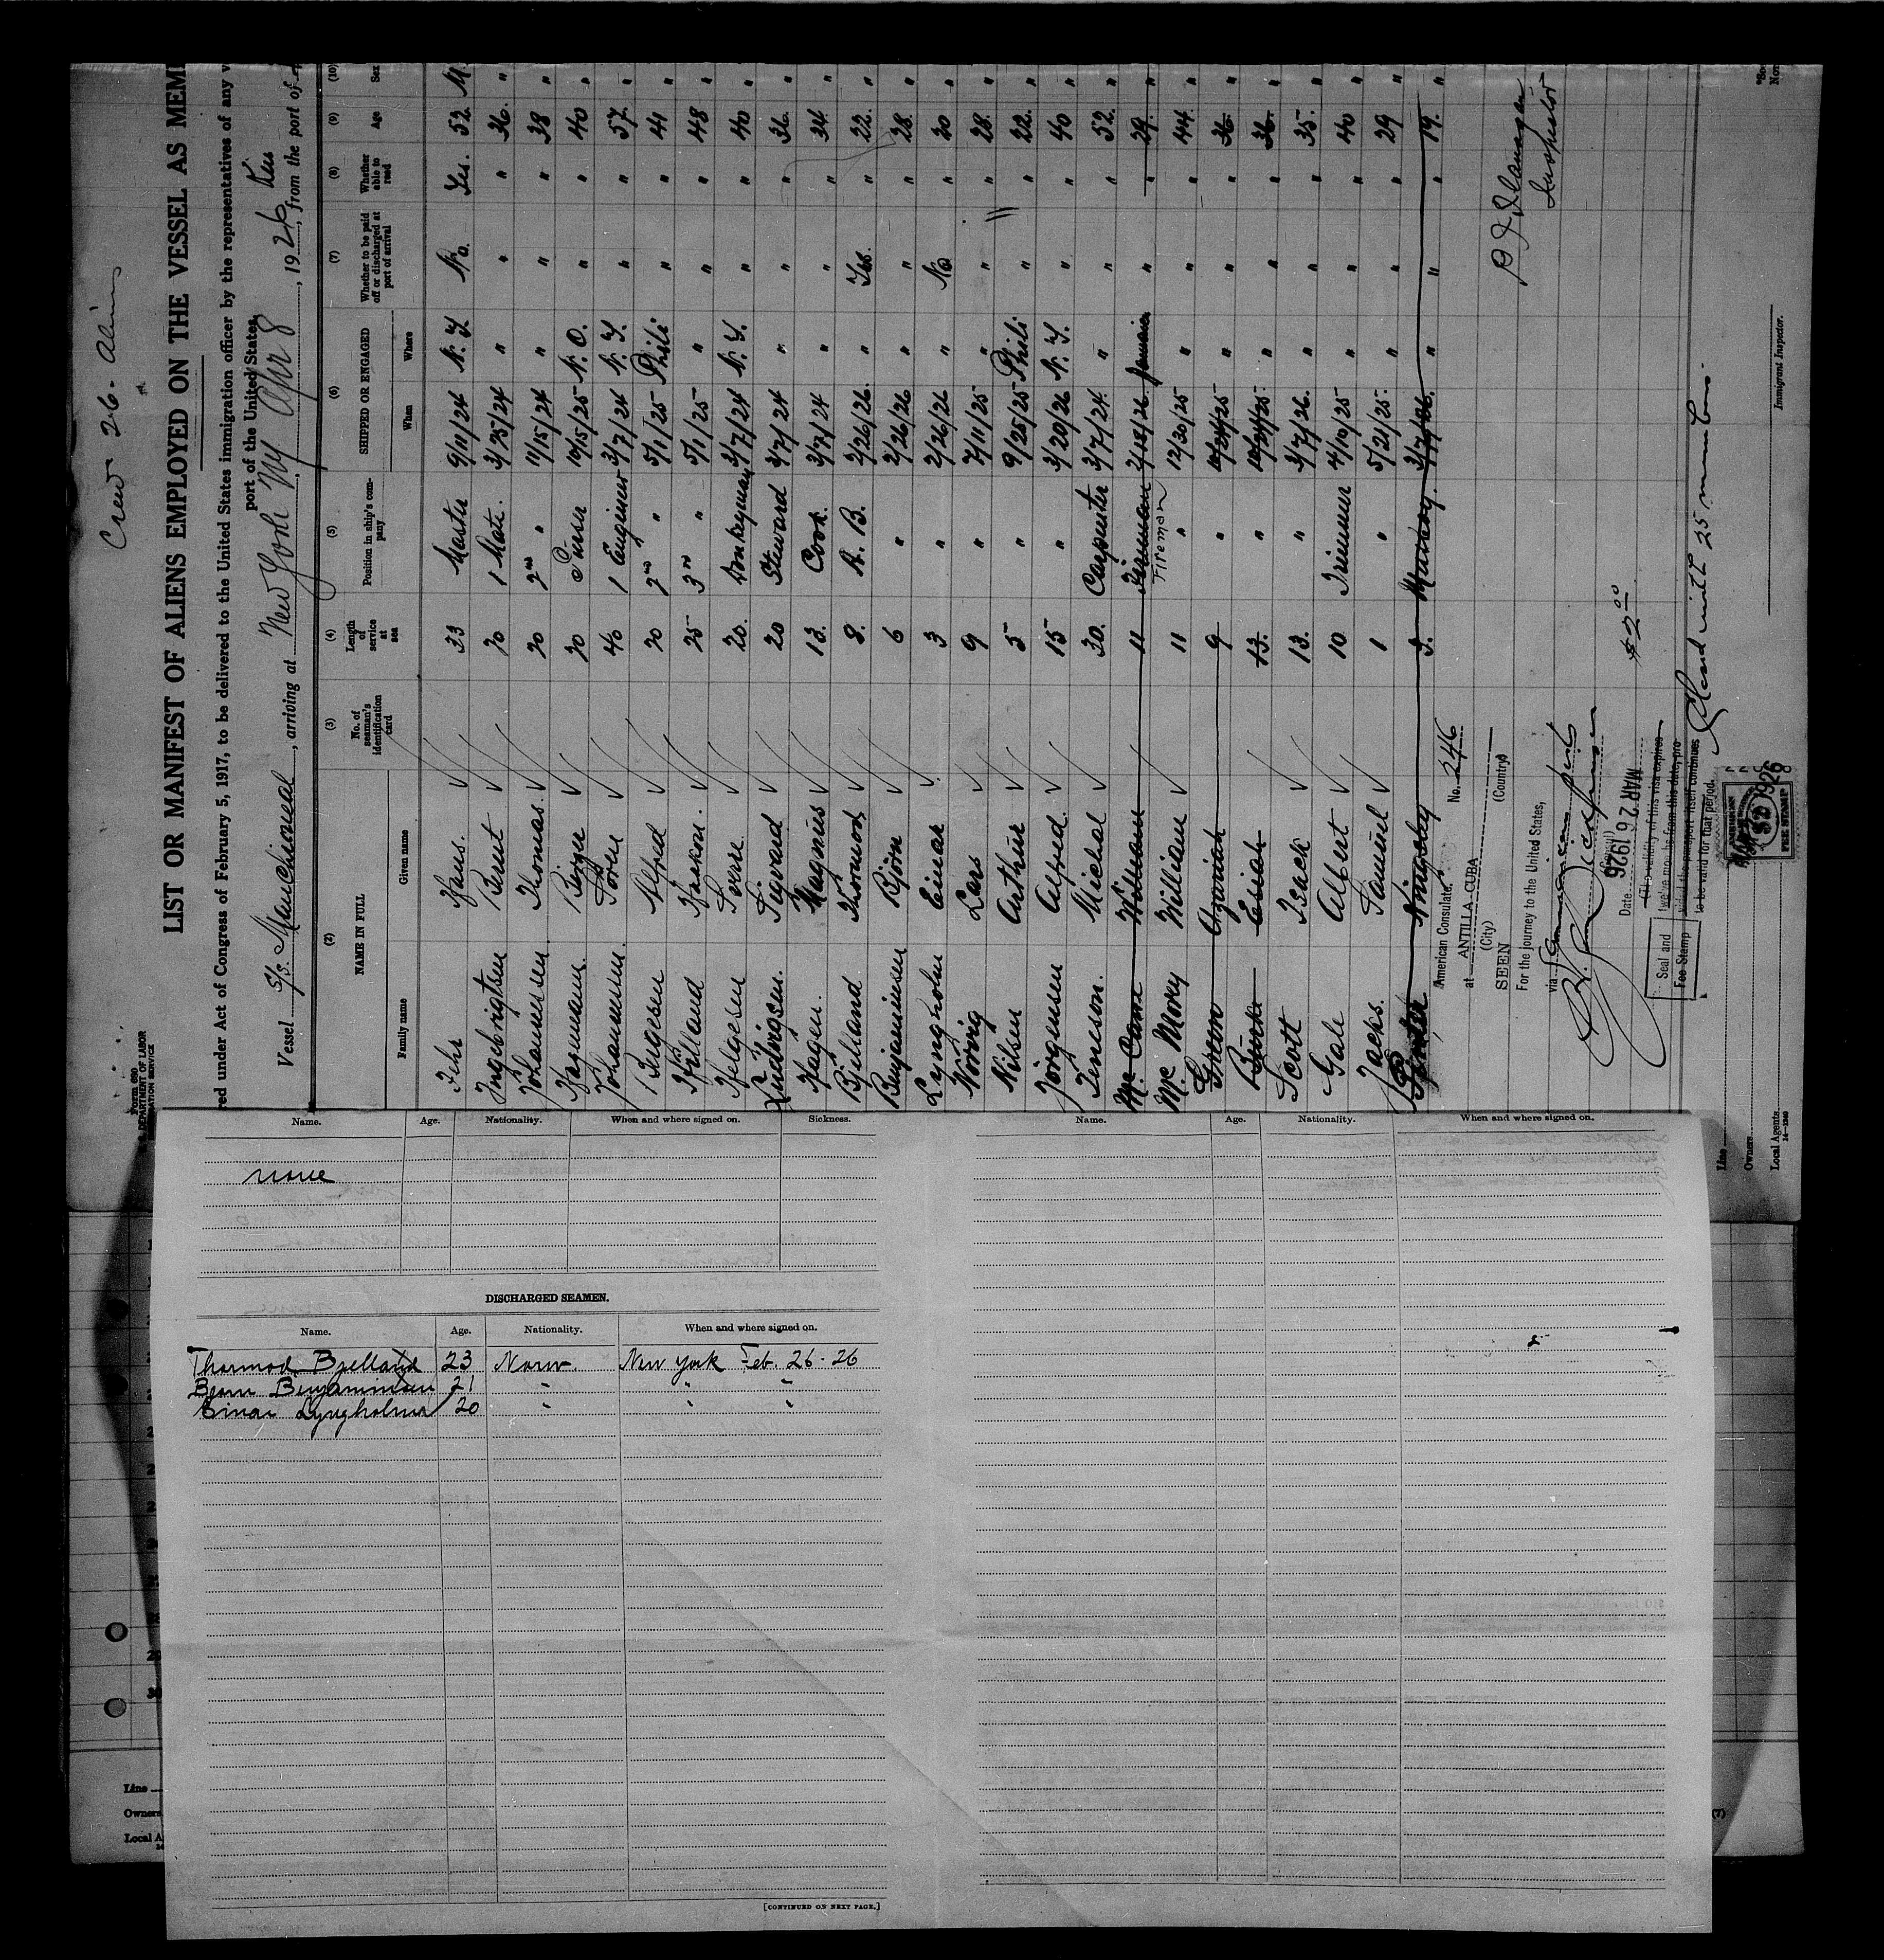 Crew 26 - Aliens
Form 680
U. S. DEPARTMENT OF LABOR
IMMIGRATION SERVICE
LIST OR MANIFEST OF ALIENS EMPLOYED ON THE VESSEL AS MEM
red under Act of Congress of February 5, 1917, to be delivered to the United States immigration officer by the representatives of any v
port of the United States
Vessel S/S. Manchioneal, arriving at New York NY Apr 8, 1926, from the port of
(2) (3) (4) (5) (6) (7) (8) (9) (10)
NAME IN FULL No. of seaman's identification card Length of service at sea Position in ship's company SHIPPED OR ENGAGED Whether to be paid off or discharged at port of arrival Whether able to read Age Sex
Family name Given name When Where
Fehr Hans. 33 Master 9/11/24 N. Y. No. Yes. 52 M.
Ingebrigtsen Bernt 20 1 Mate. 3/25/24 " " " 36. "
Johannessen Thomas. 20 2nd " 11/15/24 " " " 38 "
Hagmann. Birger 20 Purser 10/15/25 N. O. " " 40 "
Johannessen. Soren 40 1 Engineer 3/7/24 N. Y. " " 57. "
Birgesen Alfred 20 2nd " 5/1/25 Phili " " 41 "
Hilland Haakon. 25 3rd " 5/1/25 " " " 48 "
Helgesen Sverre 20. Donkeyman 3/7/24 N. Y. " " 40 "
Ludvigsen. Sigvard 20 Steward 3/7/24 " " " 36. "
Hagen. Magnus 13. Cook. 3/7/24 " " " 34 "
Bjelland Thormod 8. A. B. 2/26/26. " Yes. " 22. "
Benjaminsen Björn 6 " 2/26/26 " " " 28. "
Lyngholm Einar 3 " 2/26/26 " No " 20 "
Wörvig Lars 9 " 7/11/25 " " " 28. "
Nilsen Arthur 5 " 9/25/25 Phili " " 22. "
Jörgensen Alfred. 15 " 3/20/26 N. Y. " " 40 "
Teneson. Michal 30. Carpenter 3/7/24. " " " 52. "
Mc. Cann William 11 Fireman 2/18/26 Jamaica " " 29. "
Fireman
Mc Mory William 11 " 12/30/25 " " " 44. "
Green Azariah 9 " 10/21/25 " " " 36. "
Esiah 13. " 10/21/25. " " " 36. "
Scott Isack 13. " 3/7/26. " " " 35. "
Gale Albert 10 Trimmer 4/10/25 " " " 40 "
Jacks. Samuel 1 " 5/21/25. " " " 29 "
Kingsley 3. 3/7/26. " " " 19. "
American Consulate, No. 246
at ANTILLA CUBA
(City) (Country)
SEEN
For the journey to the United States,
via
Date MAR 26 1926
(The validity of this visa expires
twelve months from this date, pro-
vided the passport itself continues
to be valid for that period.
Seal and
Fee Stamp
$2.00
Inspector
Cleared with 25 members
AMERICAN
$2
FEE STAMP
1926
Immigrant Inspector.
Line
Owners
Local Agents
14—1240
Name. Age. Nationality. When and where signed on. Sickness.
none
DISCHARGED SEAMEN.
Name. Age. Nationality. When and where signed on.
Thormod Bjelland 23 Norw. New York Feb. 26 - 26
Bjorn Benjaminsen 21 " " "
Einar Lyngholm 20 " " "
[CONTINUED ON NEXT PAGE.]
Name. Age. Nationality. When and where signed on.
Line
Owners
Local A